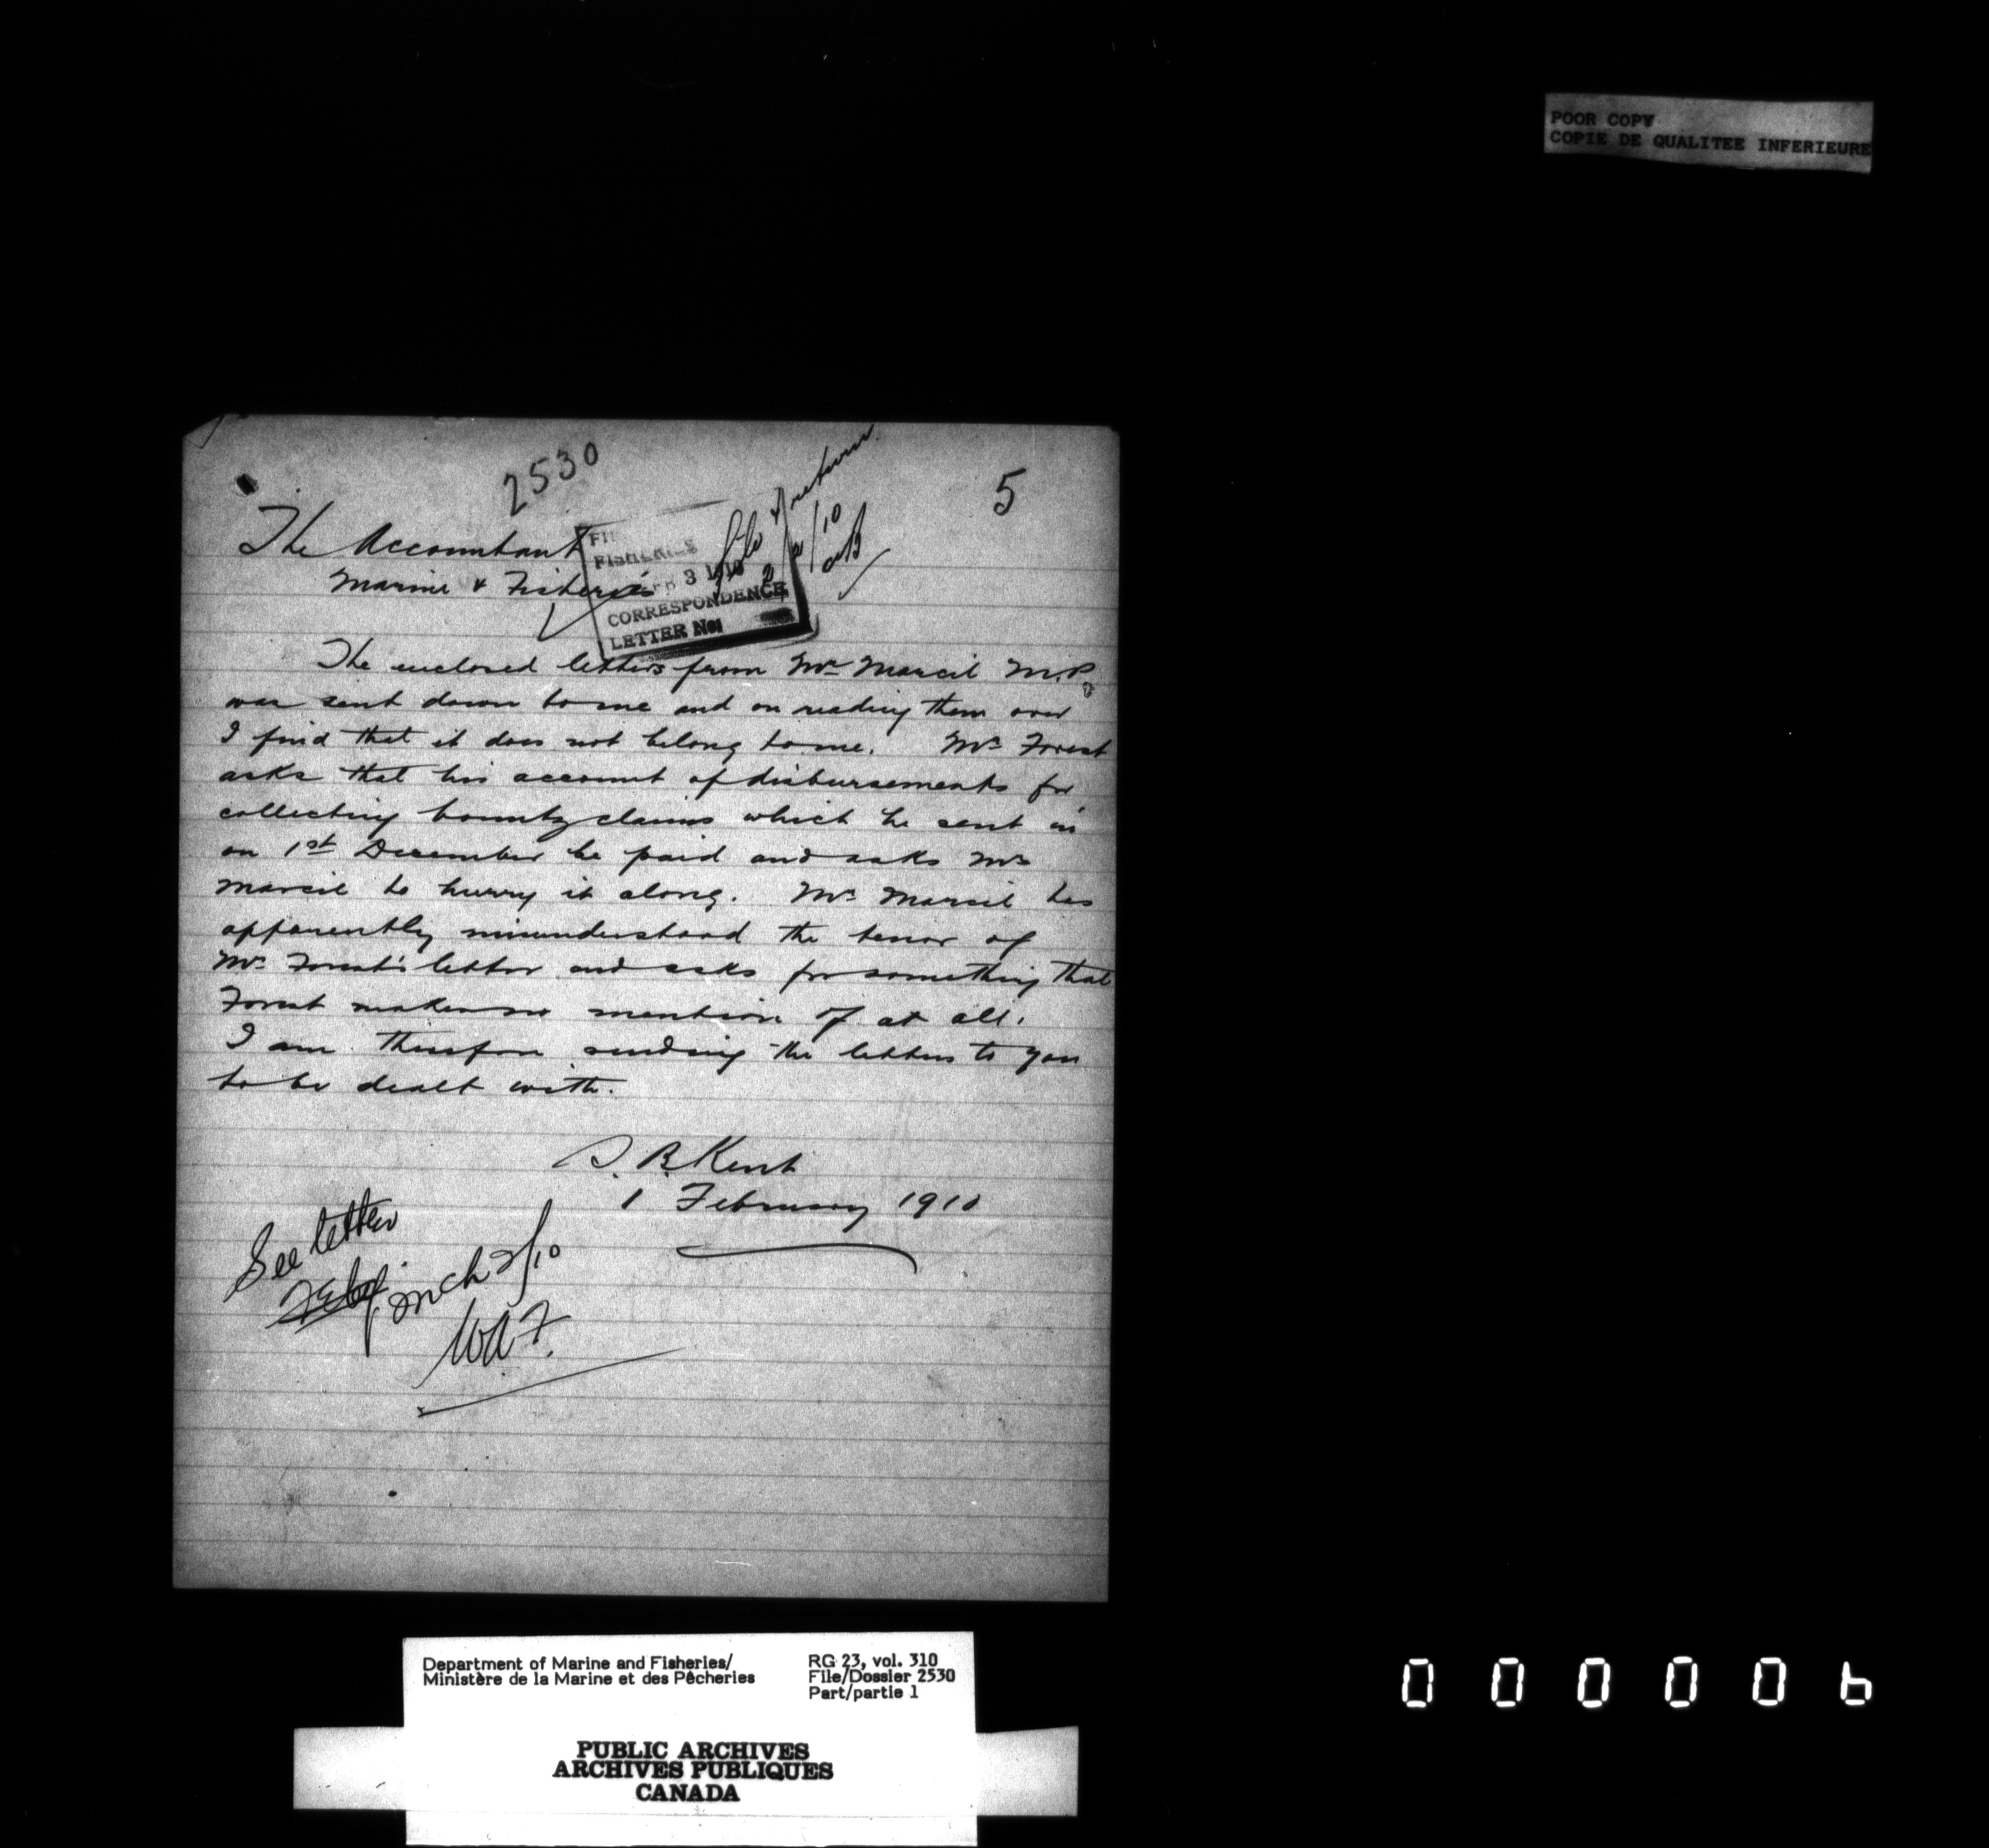 POOR COPY
COPIE DE QUALITEE INFERIEURE
2530
5
file & return
2/2/10
The Accountant
Marine & Fisheries
FISHERIES
3 1910
CORRESPONDENCE
LETTER No.
The enclosed letters from Mr Marcil M.P.
was sent down to me and on reading them over
I find that it does not belong to me. Mr Forest
asks that his account of disbursements for
collecting bounty claims which he sent in
on 1st December be paid and asks Mr
Marcil to hurry it along. Mr Marcil has
apparently misunderstood the tenor of
Mr Forest's letter and asks for something that
Forest makes no mention of at all.
I am therefore sending the letters to you
to be dealt with.
S. B. Kent
1 February 1910
See letter
Feby. Mch 2/10
Department of Marine and Fisheries/
Ministère de la Marine et des Pêcheries
RG 23, vol. 310
File/Dossier 2530
Part/partie 1
PUBLIC ARCHIVES
ARCHIVES PUBLIQUES
CANADA
000006